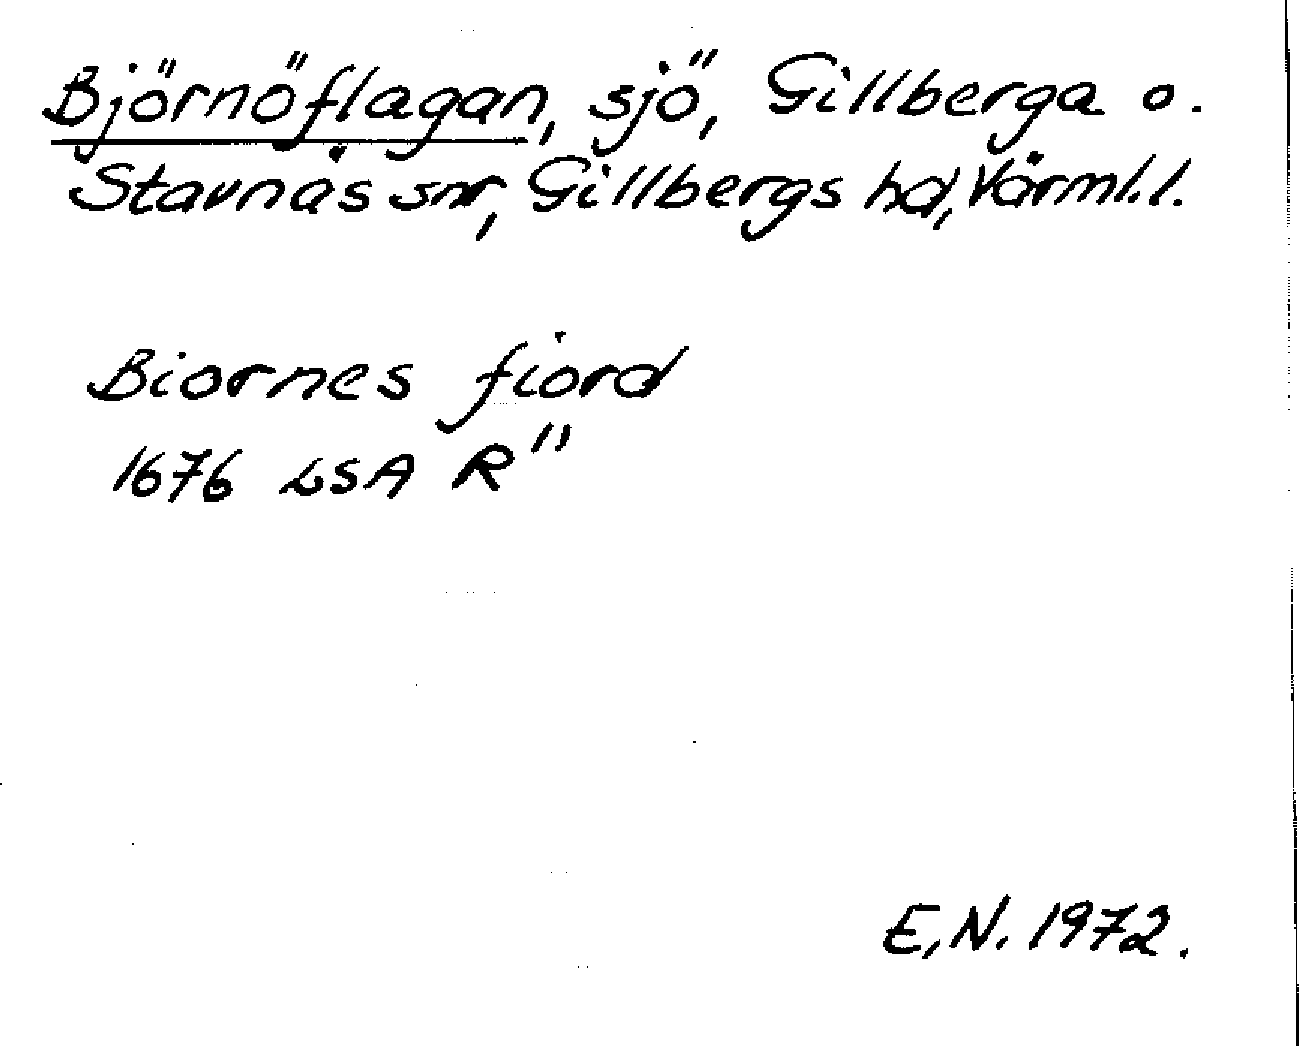 Björnöflagan, sjö, Gillberga o.
Stavnäs snr, Gillbergs hd, Värml. l.
Biornes fiord
1676 LSA R"
E.N. 1972.